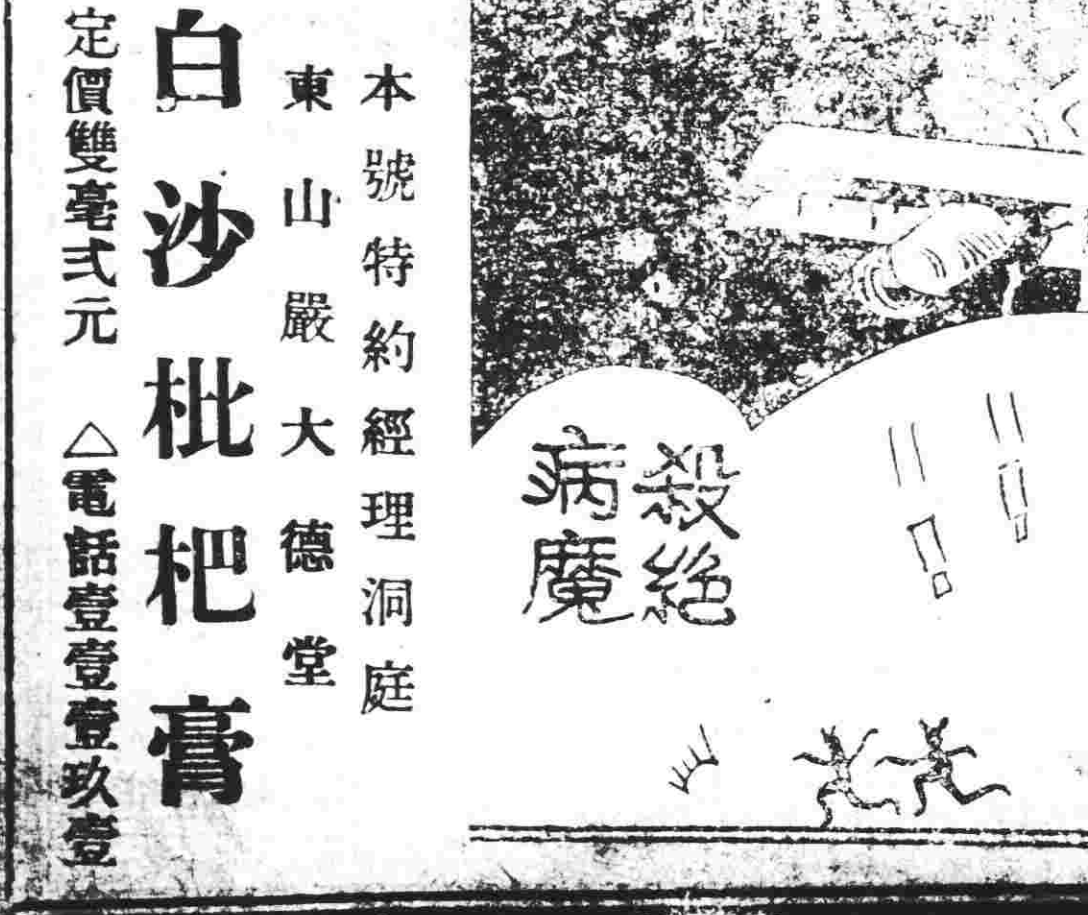 殺絕
病魔
本號特約經理洞庭
東山嚴大德堂
白沙枇杷膏
定價雙毫弍元 △電話壹壹壹玖壹